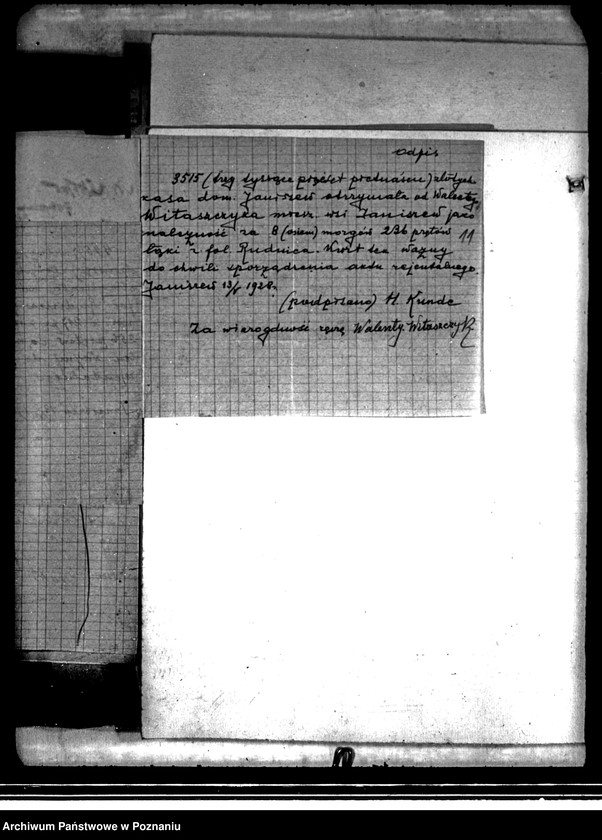 Odpis
3515 (trzy tysiące pięćset piętnaście) złotych
kasa dom. Janiszew otrzymała od Walenty
Witaszczyka mieszk. wsi Janiszew jako
należność za 8 (osiem) morgów 236 prętów
łąki z fol. Rudnica. Kwit ten ważny
11
do chwili sporządzenia aktu rejentalnego.
Janiszew 13/ 1928.
(podpisano) H. Kunde
Za wiarogdność ręczę Walenty Witaszczyk
Archiwum Państwowe w Poznaniu